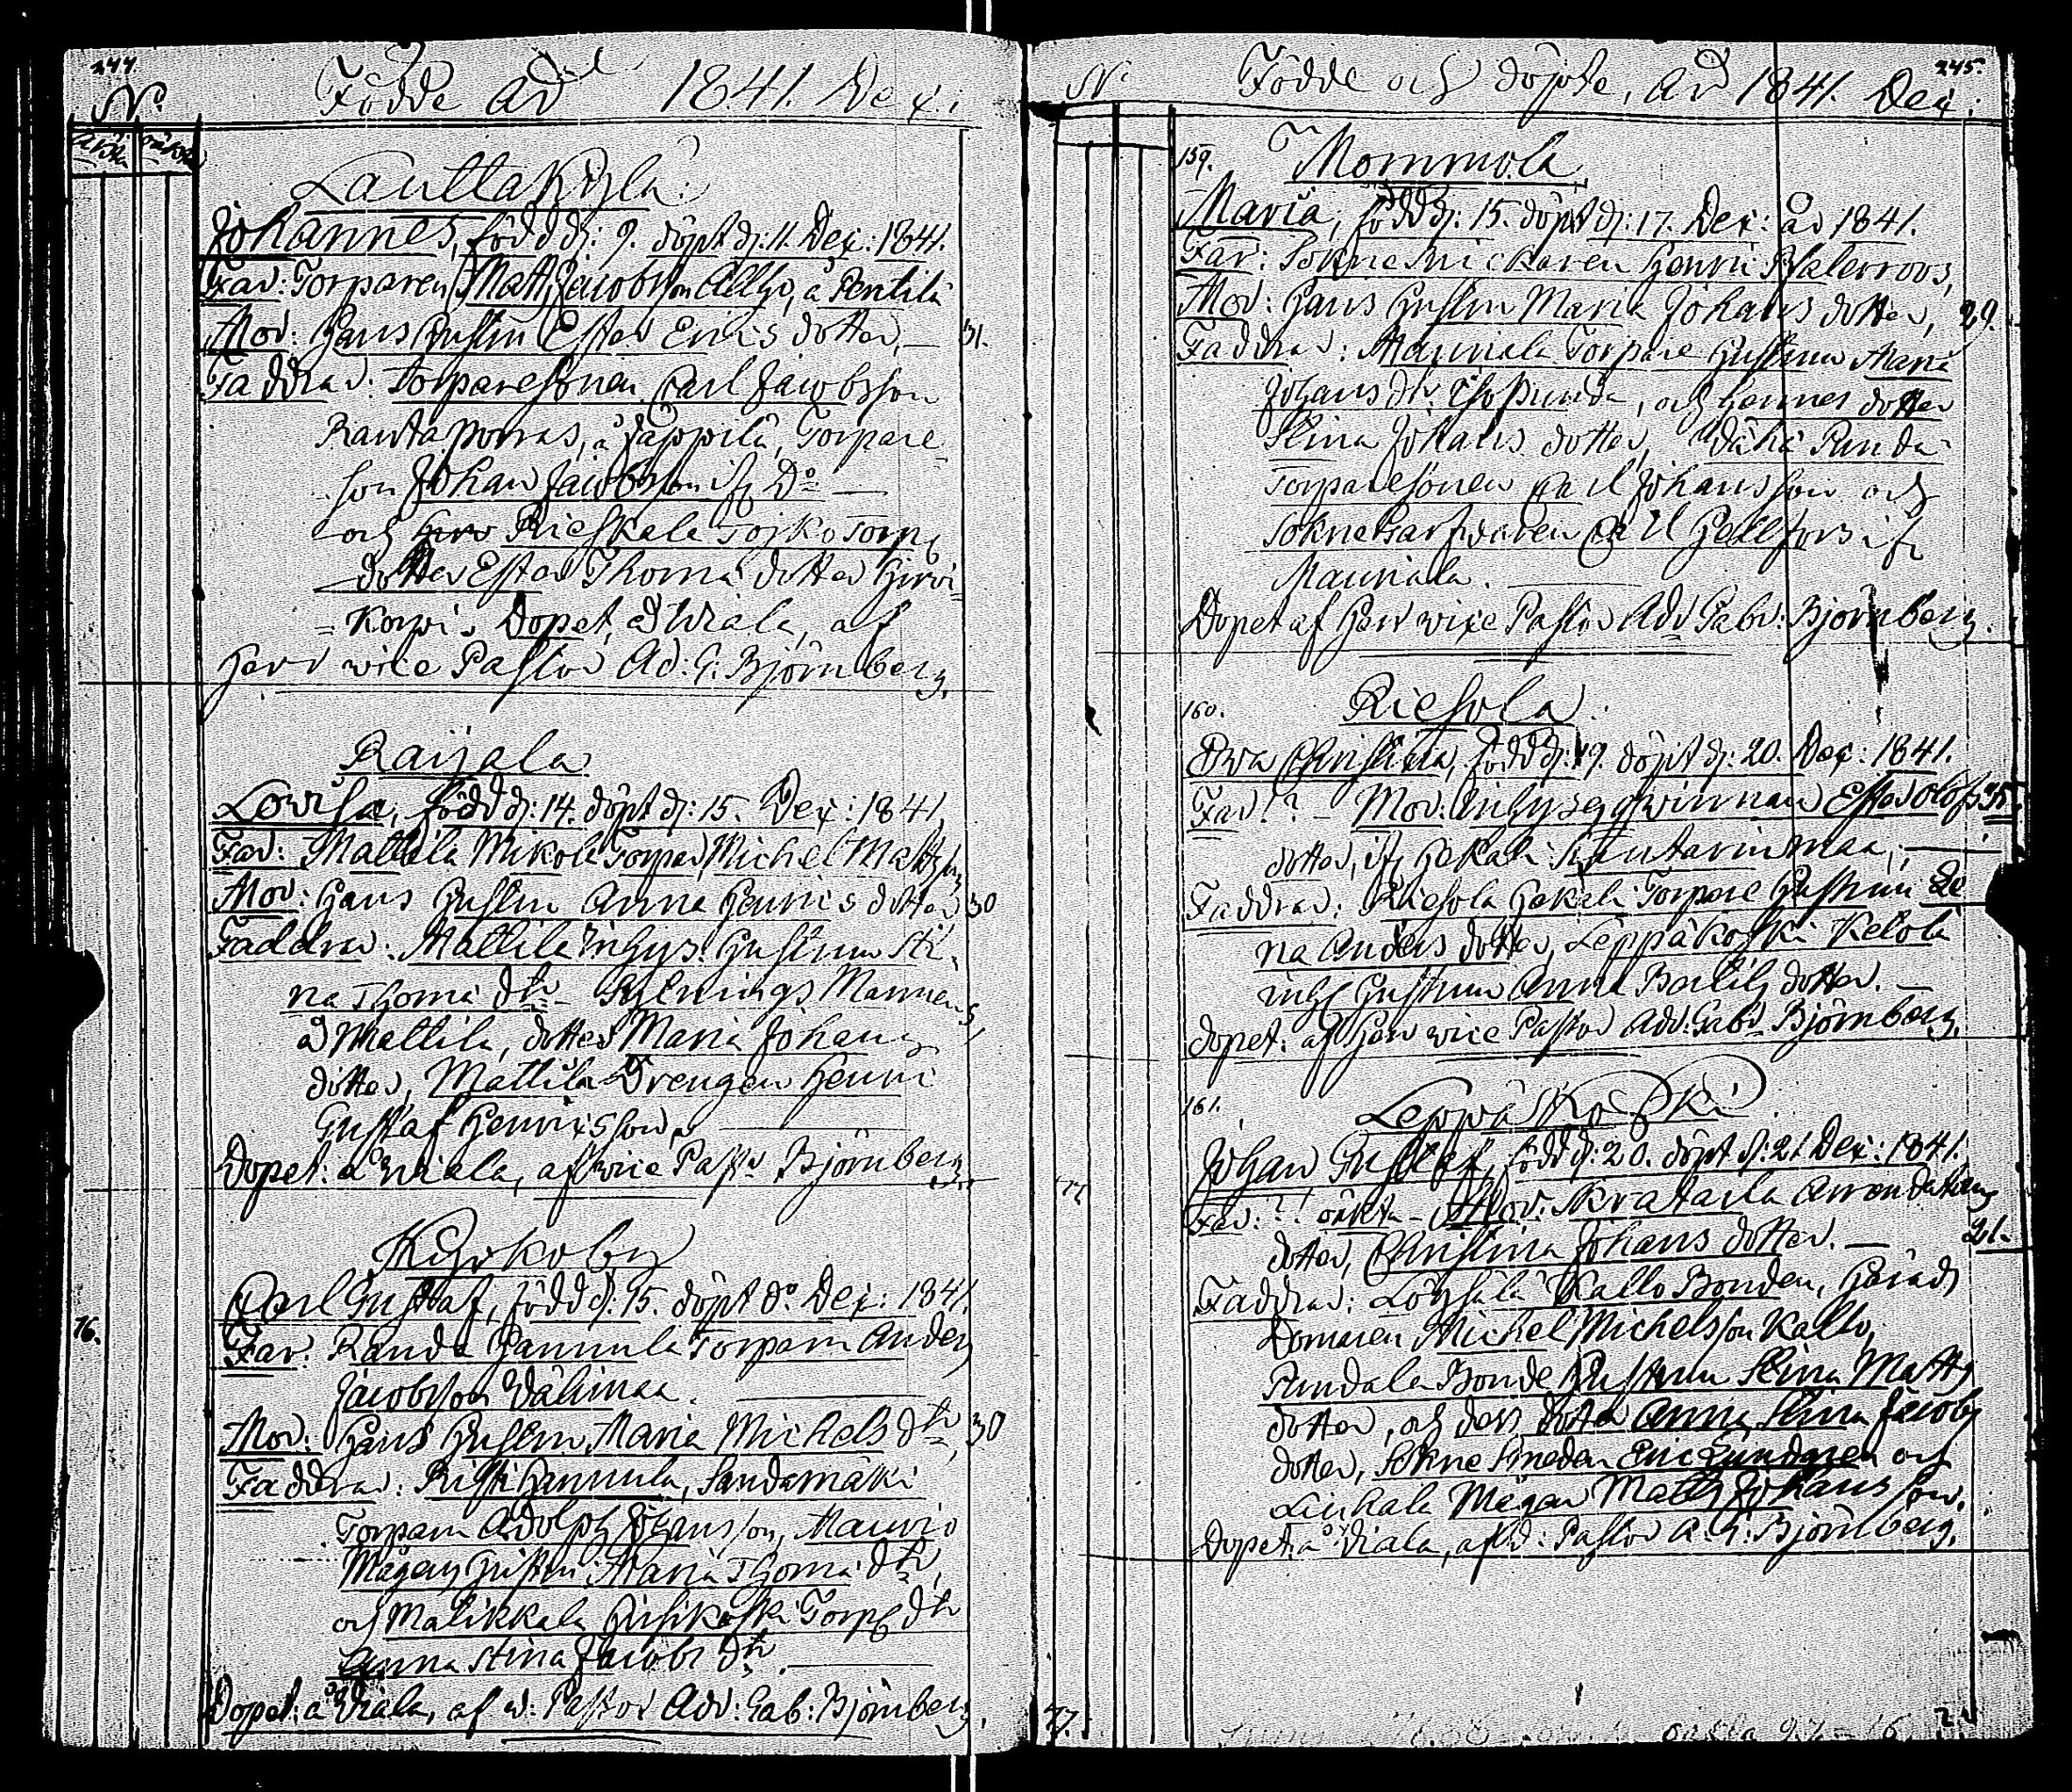 244
No.
Födde År 1841. Dex:
äkta oäkta
Lauttakylä.
Johannes, född d: 9. döpt d: 11. Dex: 1841.
Far: Torparen Matts Jacobsson Allho, å Pentilä
Mor: Hans Hustru Ester Erics dotter, — 31.
Faddrar: Torparesonen Carl Jacobsson
Rantaporras, å Jäppilä, Torpare=
son Johan Jacobsson ifr. Do —
och Rieskala Torp
dotter Ester Thoma dotter Hirvi=
=korpi. Dopet å Wiala, af
Herr vice Pastor Ad: G: Björnberg.
Raijala
Lovisa, född d: 14. döpt d: 15. Dex: 1841,
Far: Mattila Mikola Torpar Michel Mattsson
Mor: Hans Hustru Anna Henrics dotter 30
Faddrar: Mattila Inhys: Hustrun Sti=
na Thoma dtr — Mannens
å Mattila, dotter Maria Johans
dotter, Mattila Drengen Henric
Gustaf Henricsson. —
Dopet: å Wiala, af vice Past: Björnberg.
Kyrkoby
Carl Gustaf, född d: 15. döpt do Dex: 1841.
16.
Far: Hannula Torparn Anders
Jacobsson Wälimaa. —
Mor: Hans Hustru Maria Michels dtr, 30
Faddrar: Hannula, Sandamäki
Torparn Adolph Johansson, Mauvio
Mågens Hustru Maria Thoma dtr,
och Matikkala Torp dtr
Anna Stina Jacobs dtr. —
Dopet: å Wiala, af v: Pastor Adv: Gab: Björnberg.
245.
N. Födde och döpte, År 1841. Dex:
159. Mommola.
Maria, född d: 15. döpt d: 17. Dex: år 1841.
Far: Sockne Snickaren Henric
Mor: Hans Hustru Maria Johans dotter, 29.
Faddrar: Mauriala Torpare Hustrun Maria
Johans dtr, och hennes dotter
Stina Johans dotter,
Torparesonen Carl Johansson och
Sockne Garfvaren Carl Hellfors ifr
Mauriala. —
Dopet af Herr vice Pastor Adv Gabr: Björnberg.
160. Riesola.
Ewa Christina, född d: 19. döpt d: 20. Dex: 1841.
Far: ? — Mor: Inhyses qvinnan Ester Olofs 35
dotter, ifr Hekali —
Faddrar: Riesola Hekali Torpare Hustrun Le
na Anders dotter, Leppäkoski Kelola
inhs Hustrun Anna Bertils dotter. —
Dopet: af Herr vice Pastor Adv: Gabr Björnberg.
161. Leppäkoski
Johan Gustaf, född d: 20. döpt d: 21 Dex: 1841.
17.
Far: ?! oäkta — Mor: Arendators
dotter, Christina Johans dotter. — 21.
Faddrar: Löysälä Kallo Bonden, Härads
Domaren Michel Michelsson Kallo,
Pundala Bonde Hustrun Stina Matts
dotter, och dess dotter Anna Stina Jacobs
dotter, Sockne Smeden Eric Lundgren och
Liukala Mågen Matts Johansson.
Dopet: å Wiala, af V: Pastor A. G: Björnberg.
77.